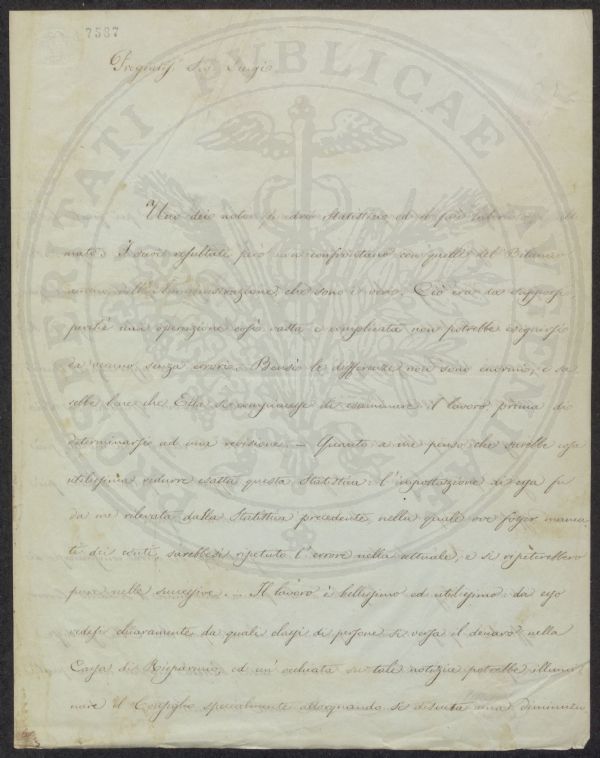 7587
Pregiatis. Sig. Luigi
Uno dei
mato. I suoi resultati però non confrontano con quelli del Bilancio
annuo dell'Amministrazione, che sono i veri. Ciò era da supporsi
perchè una operazione così vasta e complicata non potrebbe eseguirsi
da veruno senza errori. Bensì le differenze non sono enormi, e sa
rebbe bene che Ella si compiacesse di esaminare il lavoro prima di
determinarsi ad una revisione. — Quanto a me penso che sarebbe cosa
utilissima ridurre esatta questa Statistica: l'impostazione di essa fu
da me rilevata dalla Statistica precedente, nella quale ove fosser manca
ti dei conti, sarebbesi ripetuto l'errore nella attuale, e si ripeterebbero
pure nelle successive. — Il lavoro è bellissimo ed utilissimo: da esso
vedesi chiaramente da quale classi di persone si versa il denaro nella
Cassa di Risparmio, ed un' occhiata su tale notizia potrebbe illumi
nare il Consiglio specialmente allorquando si discuta una diminuzio
PROSPERITATI PUBLICAE AUGENDAE